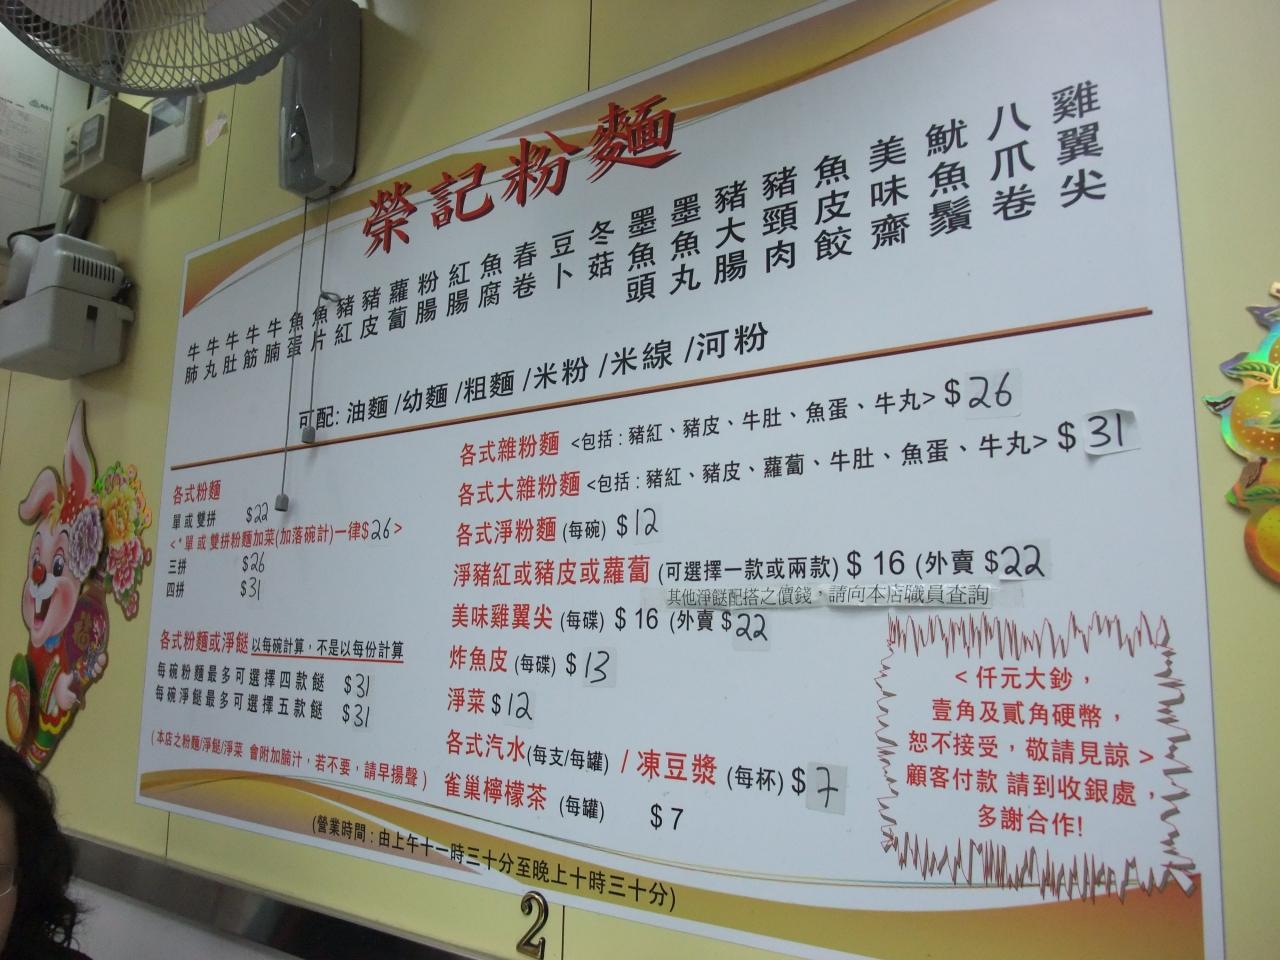 榮記粉麵
牛肺
牛丸
牛肚
牛筋
牛腩
魚蛋
魚片
豬紅
豬皮
蘿蔔
粉腸
紅腸
魚腐
春卷
豆卜
冬菇
墨魚頭
墨魚丸
豬大腸
豬頸肉
魚皮餃
美味齋
魷魚鬚
八爪卷
雞翼尖
可配: 油麵 /幼麵 /粗麵 /米粉 /米線 /河粉
各式粉麵
單或雙拼 $22
<*單或雙拼粉麵加菜(加落碗計)一律$26>
三拼 $26
四拼 $31
各式粉麵或淨餸 以每碗計算，不是以每份計算
每碗粉麵最多可選擇四款餸 $31
每碗淨餸最多可選擇五款餸 $31
(本店之粉麵/淨餸/淨菜 會附加腩汁，若不要，請早揚聲)
各式雜粉麵 <包括：豬紅、豬皮、牛肚、魚蛋、牛丸> $26
各式大雜粉麵 <包括：豬紅、豬皮、蘿蔔、牛肚、魚蛋、牛丸> $31
各式淨粉麵 (每碗) $12
淨豬紅或豬皮或蘿蔔 (可選擇一款或兩款) $ 16 (外賣 $22
其他淨餸配搭之價錢，請向本店職員查詢
美味雞翼尖 (每碟) $ 16 (外賣 $22
炸魚皮 (每碟) $13
淨菜 $12
各式汽水(每支/每罐) / 凍豆漿 (每杯) $7
雀巢檸檬茶 (每罐) $7
<仟元大鈔，
壹角及貳角硬幣，
恕不接受，敬請見諒>
顧客付款 請到收銀處，
多謝合作!
(營業時間：由上午十一時三十分至晚上十時三十分)
2